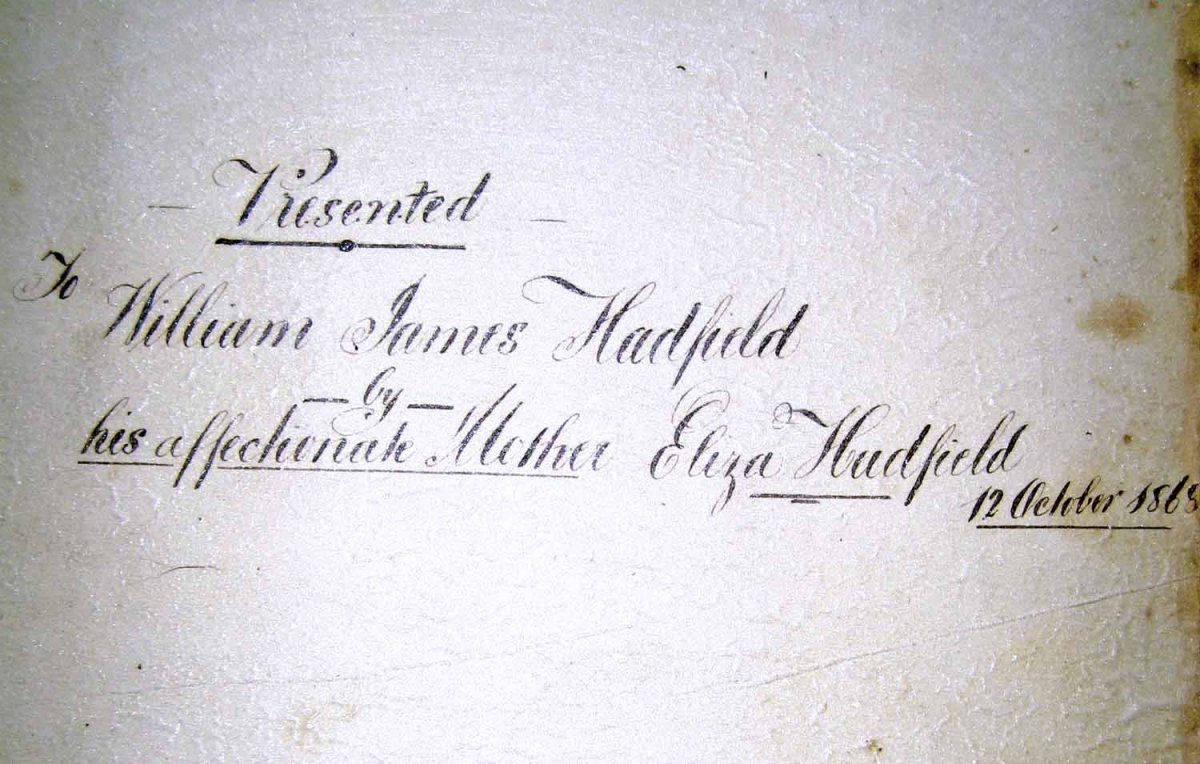 — Presented —
To William James Hadfield
— by —
his affectionate Mother Eliza Hadfield
12 October 1868